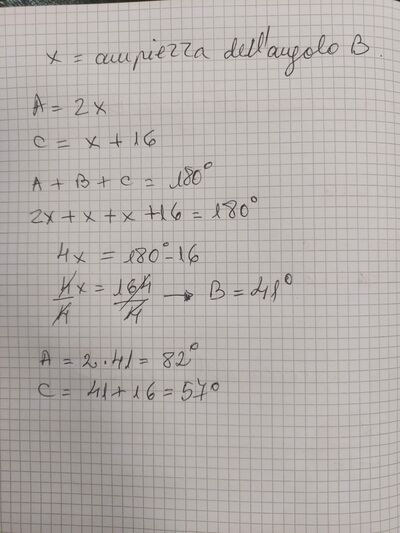 x = ampiezza dell'angolo B.
A = 2x
C = x + 16
A + B + C = 180°
2x + x + x + 16 = 180°
4x = 180° - 16
4x/4 = 164/4 → B = 41°
A = 2 · 41 = 82°
C = 41 + 16 = 57°